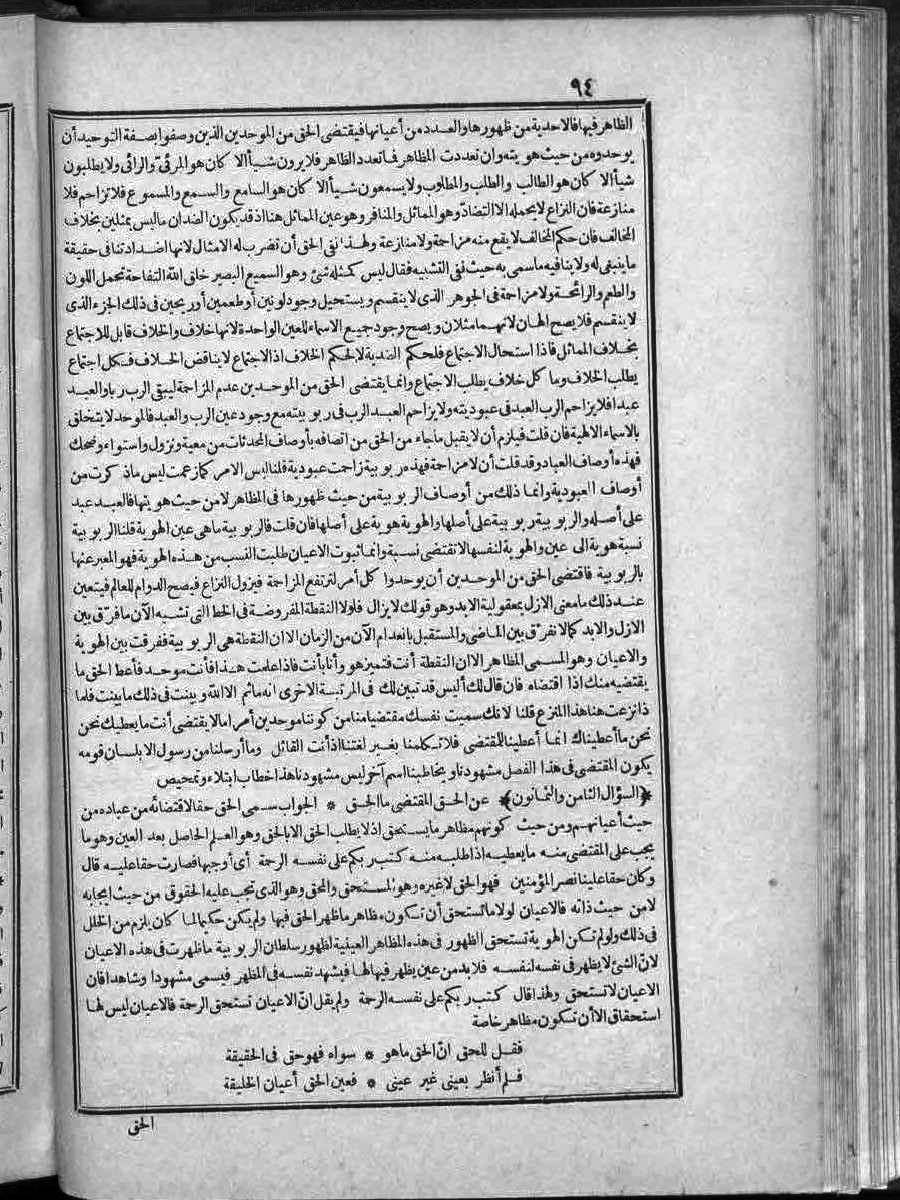 ٩٤
الظاهر فيها فالاحدية من ظهورها والعدد من أعيانها فيقتضى الحق من الموحدين الذين وصفوا بصفة التوحيد أن
يوحدوه من حيث هويته وان تعددت المظاهر فما تعدد الظاهر فلا يرون شيأ الا كان هو المرئى والرائى ولا يطلبون
شيأ الا كان هو الطالب والطلب والمطلوب ولا يسمعون شيأ الا كان هو السامع والسمع والمسموع فلا تزاحم فلا
منازعة فان النزاع لا يحمله الا التضاد وهو المماثل والمنافر وهو عين المماثل هنا اذ قد يكون الضدان ما ليس بمثلين بخلاف
المخالف فان حكم المخالف لا يقع منه مزاحمة ولا منازعة ولهذا نفى الحق أن تضرب له الامثال لانها اضداد تنافى حقيقة
ما ينبغى له ولا ينافيه ما سمى به حيث نفى التشبيه فقال ليس كمثله شئ وهو السميع البصير خلق الله التفاحة تحمل اللون
والطعم والرائحة ولا مزاحمة فى الجوهر الذى لا ينقسم ويستحيل وجود لونين أو طعمين أو ريحين فى ذلك الجزء الذى
لا ينقسم فلا يصح الهان لانهما مثلان ويصح وجود جميع الاسماء للعين الواحدة لانها خلاف والخلاف قابل للاجتماع
بخلاف المماثل فاذا استحال الاجتماع فلحكم الضدية لا لحكم الخلاف اذ الاجتماع لا يناقض الخلاف فكل اجتماع
يطلب الخلاف وما كل خلاف يطلب الاجتماع وانما يقتضى الحق من الموحدين عدم المزاحمة ليبقى الرب ربا والعبد
عبدا فلا يزاحم الرب العبد فى عبوديته ولا يزاحم العبد الرب فى ربوبيته مع وجود عين الرب والعبد فالموحد لا يتخلق
بالاسماء الالهية فان قلت فيلزم أن لا يقبل ما جاء من الحق من اتصافه بأوصاف المحدثات من معية ونزول واستواء وضحك
فهذه أوصاف العباد وقد قلت أن لا مزاحمة فهذه ربوبية زاحمت عبودية قلنا ليس الامر كما زعمت ليس ما ذكرت من
أوصاف العبودية وانما ذلك من أوصاف الربوبية من حيث ظهورها فى المظاهر لا من حيث هويتها فالعبد عبد
على أصله والربوبية ربوبية على أصلها والهوية هوية على أصلها فان قلت فالربوبية ما هى عين الهوية قلنا الربوبية
نسبة هوية الى عين والهوية لنفسها لا تقتضى نسبة وانما ثبوت الاعيان طلبت النسب من هذه الهوية فهو المعبر عنها
بالربوبية فاقتضى الحق من الموحدين أن يوحدوا كل أمر لترتفع المزاحمة فيزول النزاع فيصح الدوام للعالم فيتعين
عند ذلك ما معنى الازل بمعقولية الابد وهو قولك لا يزال فلولا النقطة المفروضة فى الخط التى تشبه الآن ما فرّق بين
الازل والابد كما لا نفرّق بين الماضى والمستقبل بانعدام الآن من الزمان الا ان النقطة هى الربوبية ففرقت بين الهوية
والاعيان وهو المسمى المظاهر الا ان النقطة أنت فتميز هو وأنا بأنت فاذا علمت هذا فأنت موحد فأعط الحق ما
يقتضيه منك اذا اقتضاه فان قال لك أليس قد تبين لك فى المرتبة الاخرى انه ما ثم الا الله وبينت فى ذلك ما بينت فلما
ذا نزعت هنا هذا المنزع قلنا لانك سميت نفسك مقتضيا منا من كوننا موحدين أمر اما لا يقتضى أنت ما يعطيك نحن
نحن ما أعطيناك انما أعطينا للمقتضى فلا تكلمنا بغير لغتنا اذ أنت القائل وما أرسلنا من رسول الا بلسان قومه
يكون المقتضى فى هذا الفصل مشهودنا ويخاطبنا اسم آخر ليس مشهودنا هذا خطاب ابتلاء وتمحيص
﴿السؤال الثامن والثمانون﴾ عن الحق المقتضى ما الحق * الجواب سمى الحق حقا لاقتضائه من عباده من
حيث أعيانهم ومن حيث كونهم مظاهر ما يستحق اذ لا يطلب الحق الا بالحق وهو العلم الحاصل بعد العين وهو ما
يجب على المقتضى منه ما يعطيه اذا طلبه منه كتب ربكم على نفسه الرحمة أى أوجبها فصارت حقا عليه قال
وكان حقا علينا نصر المؤمنين فهو الحق لا غيره وهو المستحق والمحق وهو الذى تجب عليه الحقوق من حيث ايجابه
لا من حيث ذاته فالاعيان لولا ما تستحق أن تكون مظاهر ما ظهر الحق فيها ولم يكن حكيما لما كان يلزم من الخلل
فى ذلك ولو لم تكن الهوية تستحق الظهور فى هذه المظاهر العينية لظهور سلطان الربوبية ما ظهرت فى هذه الاعيان
لانّ الشئ لا يظهر فى نفسه لنفسه فلا بد من عين يظهر فيها لها فيشهد نفسه فى المظهر فيسمى مشهودا وشاهدا فان
الاعيان لا تستحق ولهذا قال كتب ربكم على نفسه الرحمة ولم يقل انّ الاعيان تستحق الرحمة فالاعيان ليس لها
استحقاق الا أن تكون مظاهر خاصة
فقل للحق انّ الحق ما هو * سواه فهو حق فى الحقيقة
فلم أنظر بعينى غير عينى * فعين الحق أعيان الخليقة
الحق